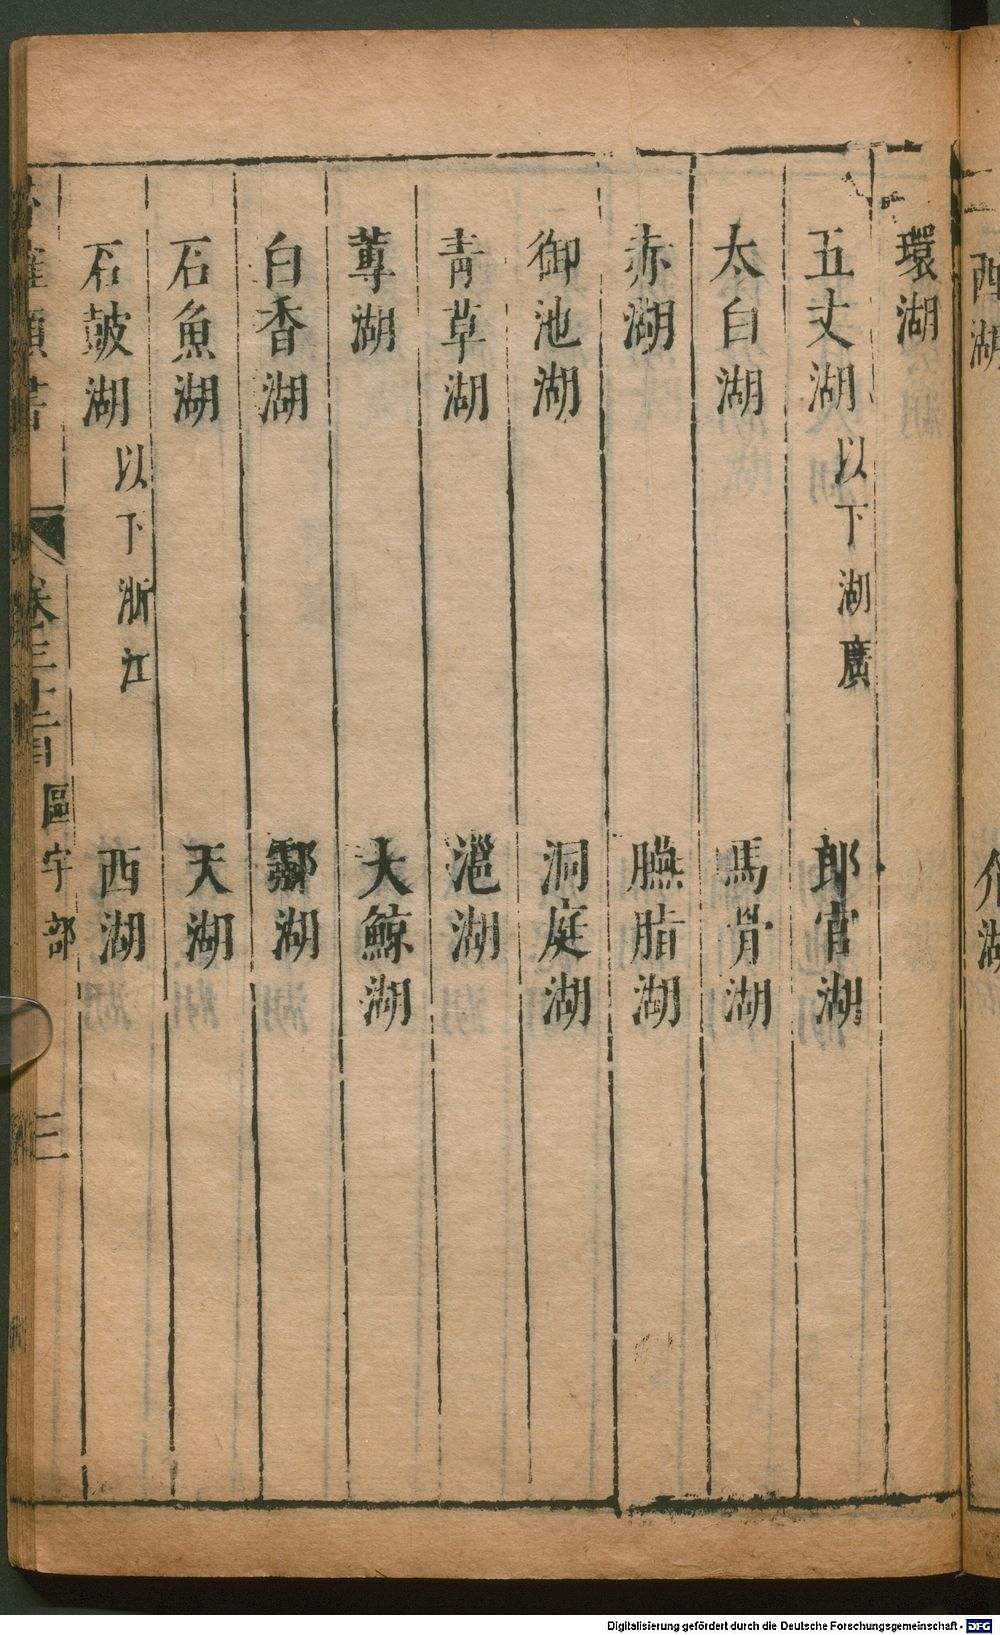 西湖
介湖
環湖
五丈湖 以下湖廣 郎官湖
太白湖 馬骨湖
赤湖 臙脂湖
御池湖 洞庭湖
青草湖 滬湖
蓴湖 大鯨湖
白香湖 酃湖
石魚湖 天湖
石皷湖 以下浙江 西湖
卷三十二目 區宇部 三
Digitalisierung gefördert durch die Deutsche Forschungsgemeinschaft - DFG